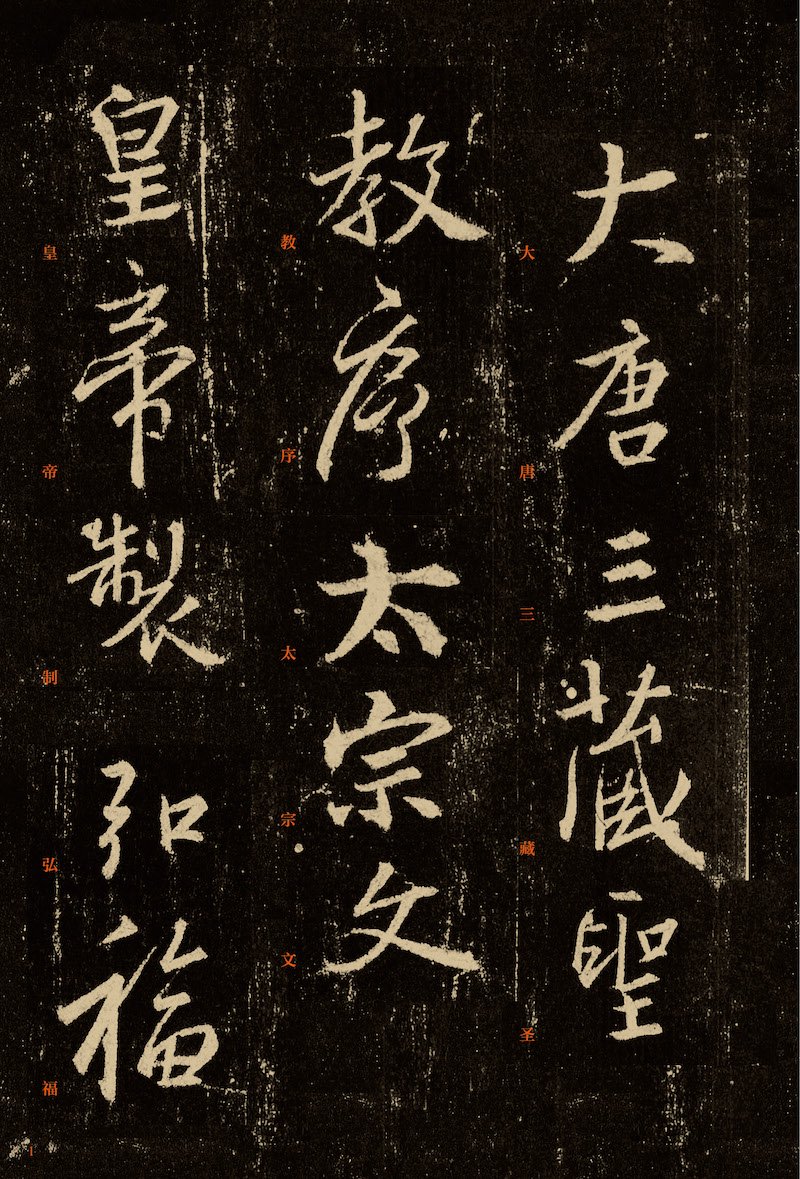 大唐三藏聖
教序太宗文
皇帝製弘福
大
唐
三
藏
圣
教
序
太
宗
文
皇
帝
制
弘
福
1